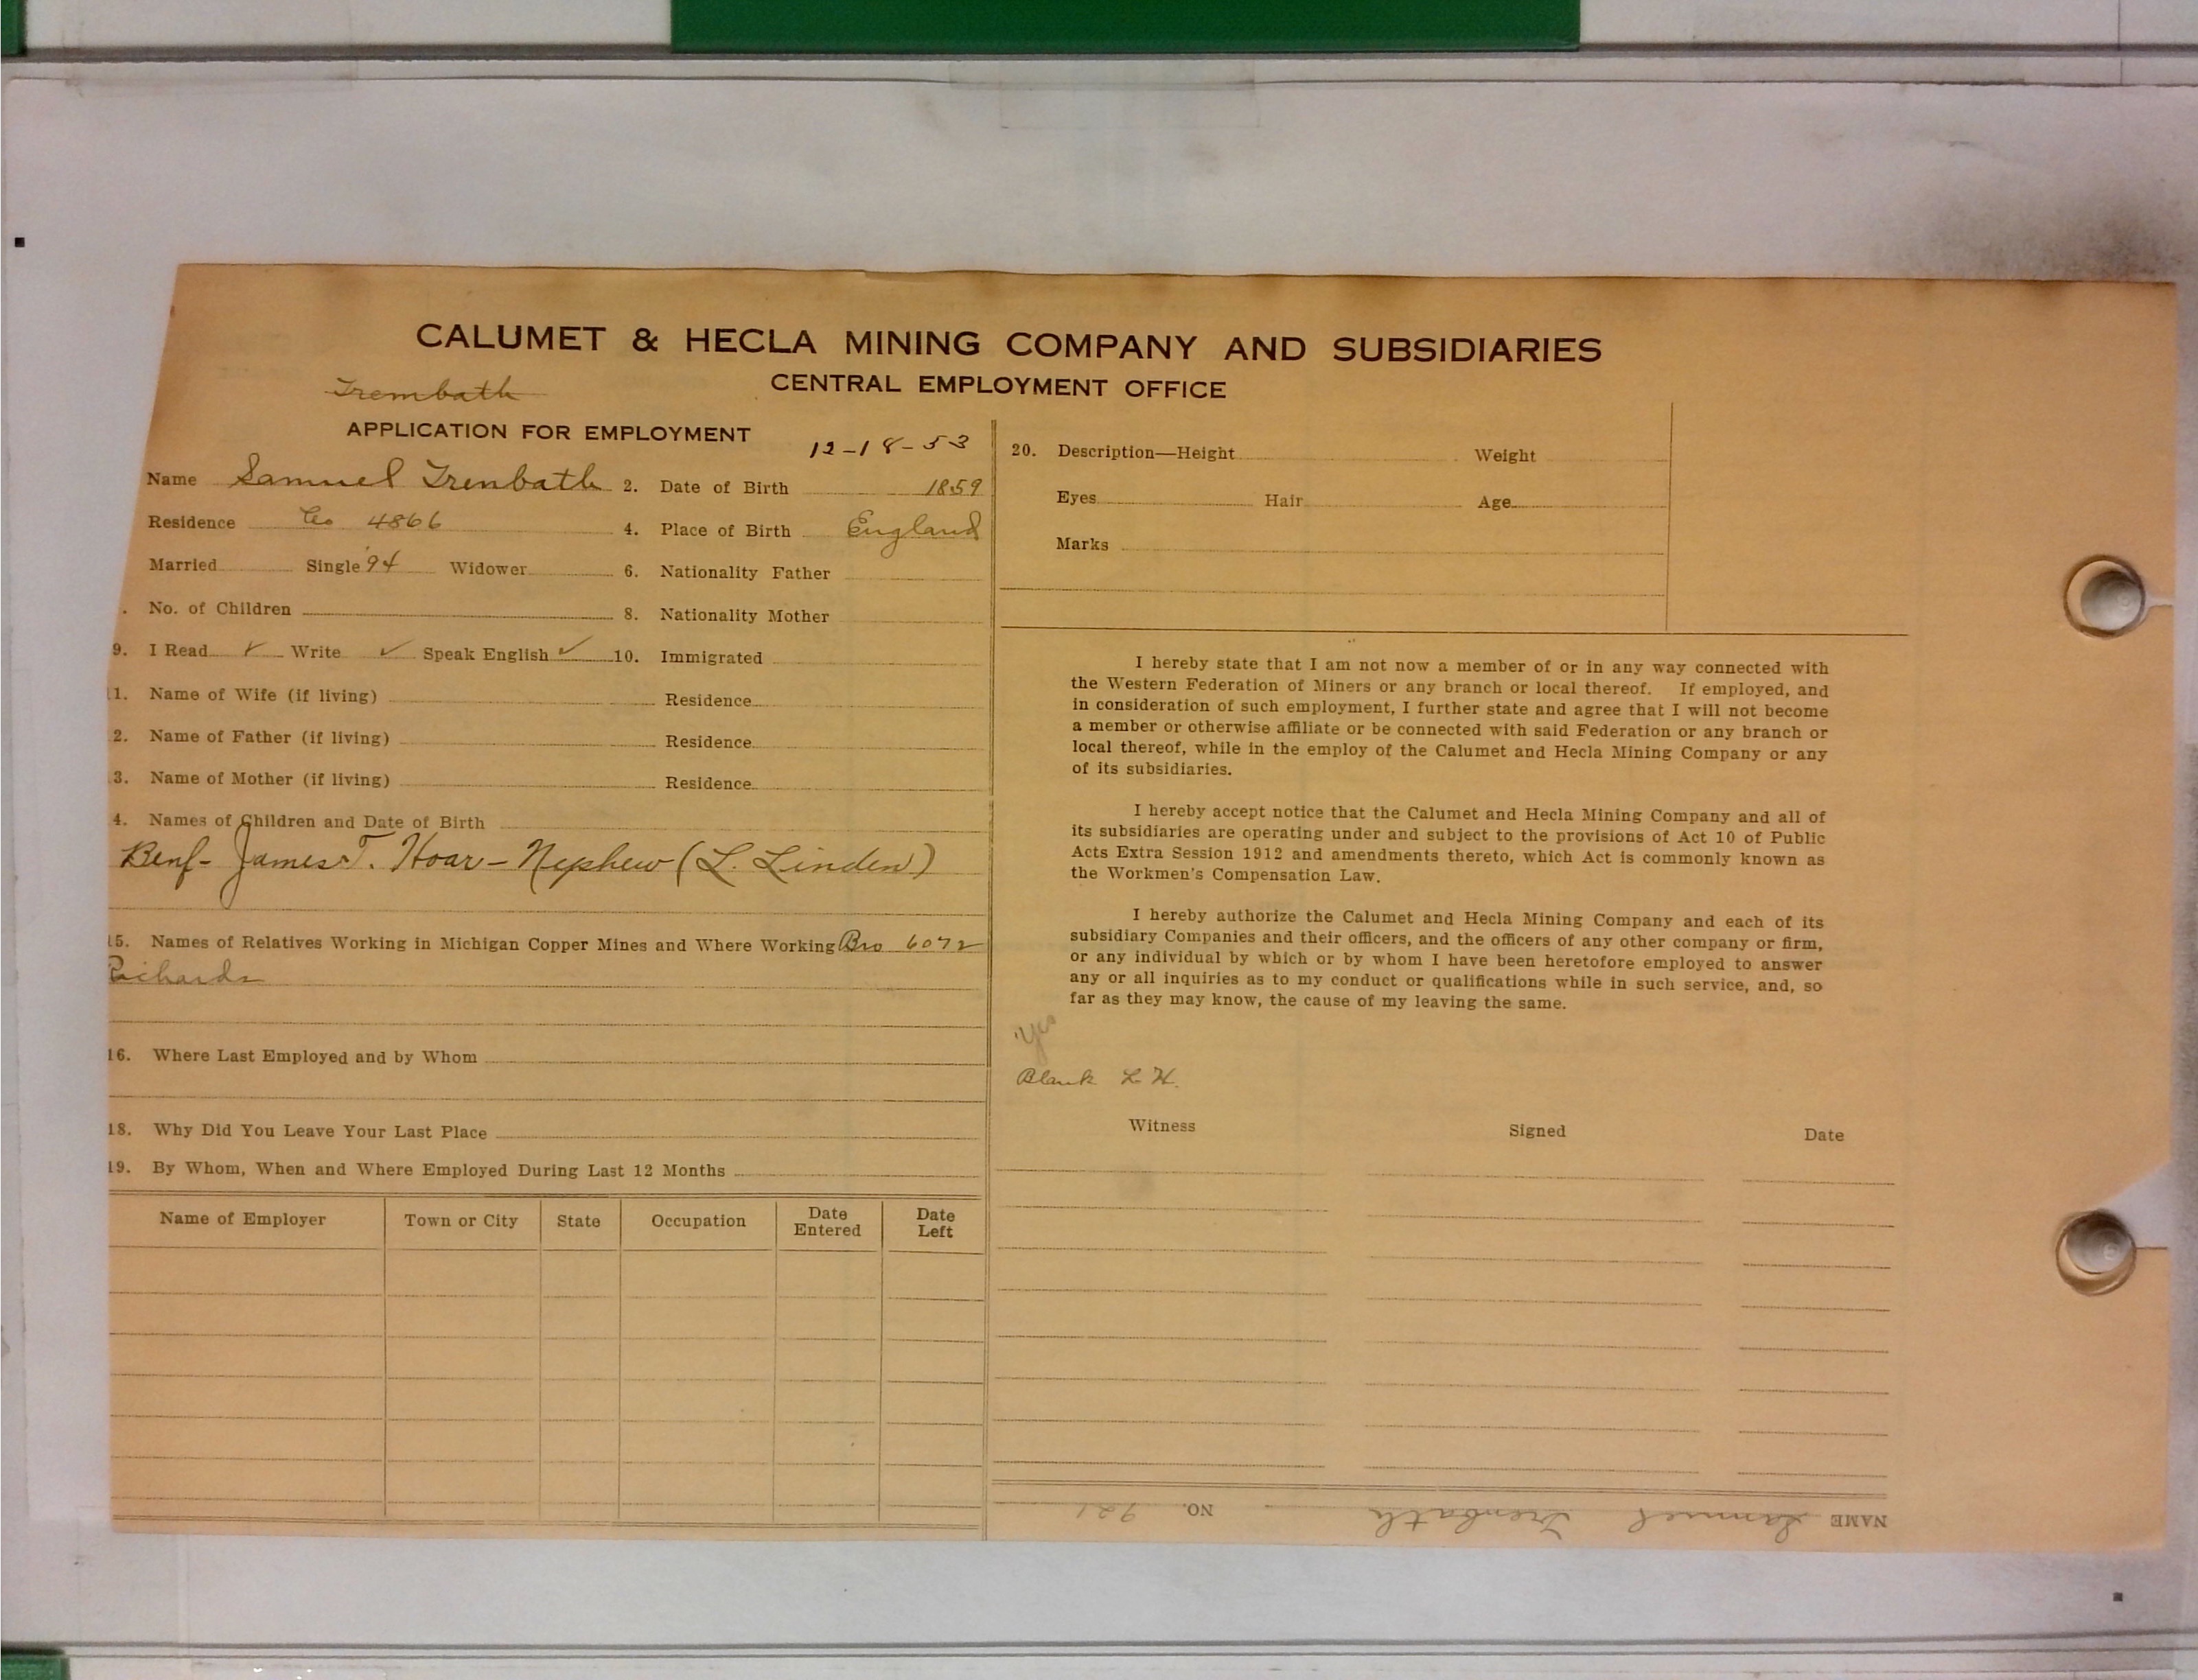 CALUMET & HECLA MINING COMPANY AND SUBSIDIARIES
CENTRAL EMPLOYMENT OFFICE
Trembath
APPLICATION FOR EMPLOYMENT
12-18-53
Name Samuel Trenbath 2. Date of Birth 1859
Residence Co 4866 4. Place of Birth England
Married Single '94 Widower 6. Nationality Father
. No. of Children 8. Nationality Mother
9. I Read ✓ Write ✓ Speak English ✓ 10. Immigrated
11. Name of Wife (if living) Residence
2. Name of Father (if living) Residence
3. Name of Mother (if living) Residence
4. Names of Children and Date of Birth
Benf- James T. Hoar - Nephew (L. Linden)
15. Names of Relatives Working in Michigan Copper Mines and Where Working Bro 6072
Richards
16. Where Last Employed and by Whom
18. Why Did You Leave Your Last Place
19. By Whom, When and Where Employed During Last 12 Months
Name of Employer Town or City State Occupation Date Entered Date Left
20. Description—Height Weight
Eyes Hair Age
Marks
I hereby state that I am not now a member of or in any way connected with
the Western Federation of Miners or any branch or local thereof. If employed, and
in consideration of such employment, I further state and agree that I will not become
a member or otherwise affiliate or be connected with said Federation or any branch or
local thereof, while in the employ of the Calumet and Hecla Mining Company or any
of its subsidiaries.
I hereby accept notice that the Calumet and Hecla Mining Company and all of
its subsidiaries are operating under and subject to the provisions of Act 10 of Public
Acts Extra Session 1912 and amendments thereto, which Act is commonly known as
the Workmen's Compensation Law.
I hereby authorize the Calumet and Hecla Mining Company and each of its
subsidiary Companies and their officers, and the officers of any other company or firm,
or any individual by which or by whom I have been heretofore employed to answer
any or all inquiries as to my conduct or qualifications while in such service, and, so
far as they may know, the cause of my leaving the same.
Yes
Blank L H.
Witness Signed Date
NAME Samuel Trenbath NO. 921